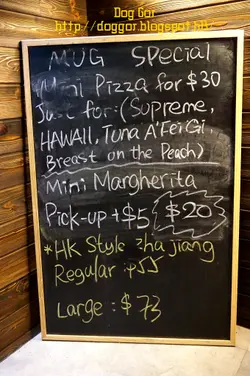 Dog Gor
http://doggor.blogspot.hk
MUG SPECIAL
Mini Pizza for $30
Just for:(Supreme,
HAWAII, Tuna A'Fei Gi,
Breast on the Peach)
Mini Margherita
Pick-up +$5 $20
*HK Style zha jiang
Regular: $55
Large: $73